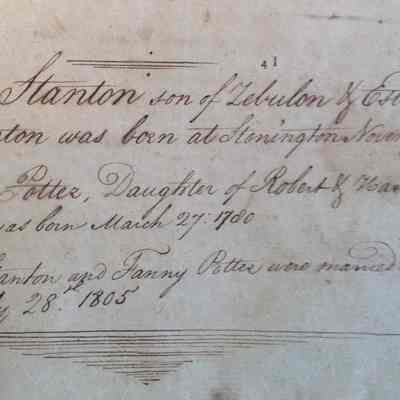 41
Stanton son of Zebulon & Est
ton was born at Stonington Novem
Potter, Daughter of Robert & Han
was born March 27: 1780
Stanton and Fanny Potter were married
28th 1805